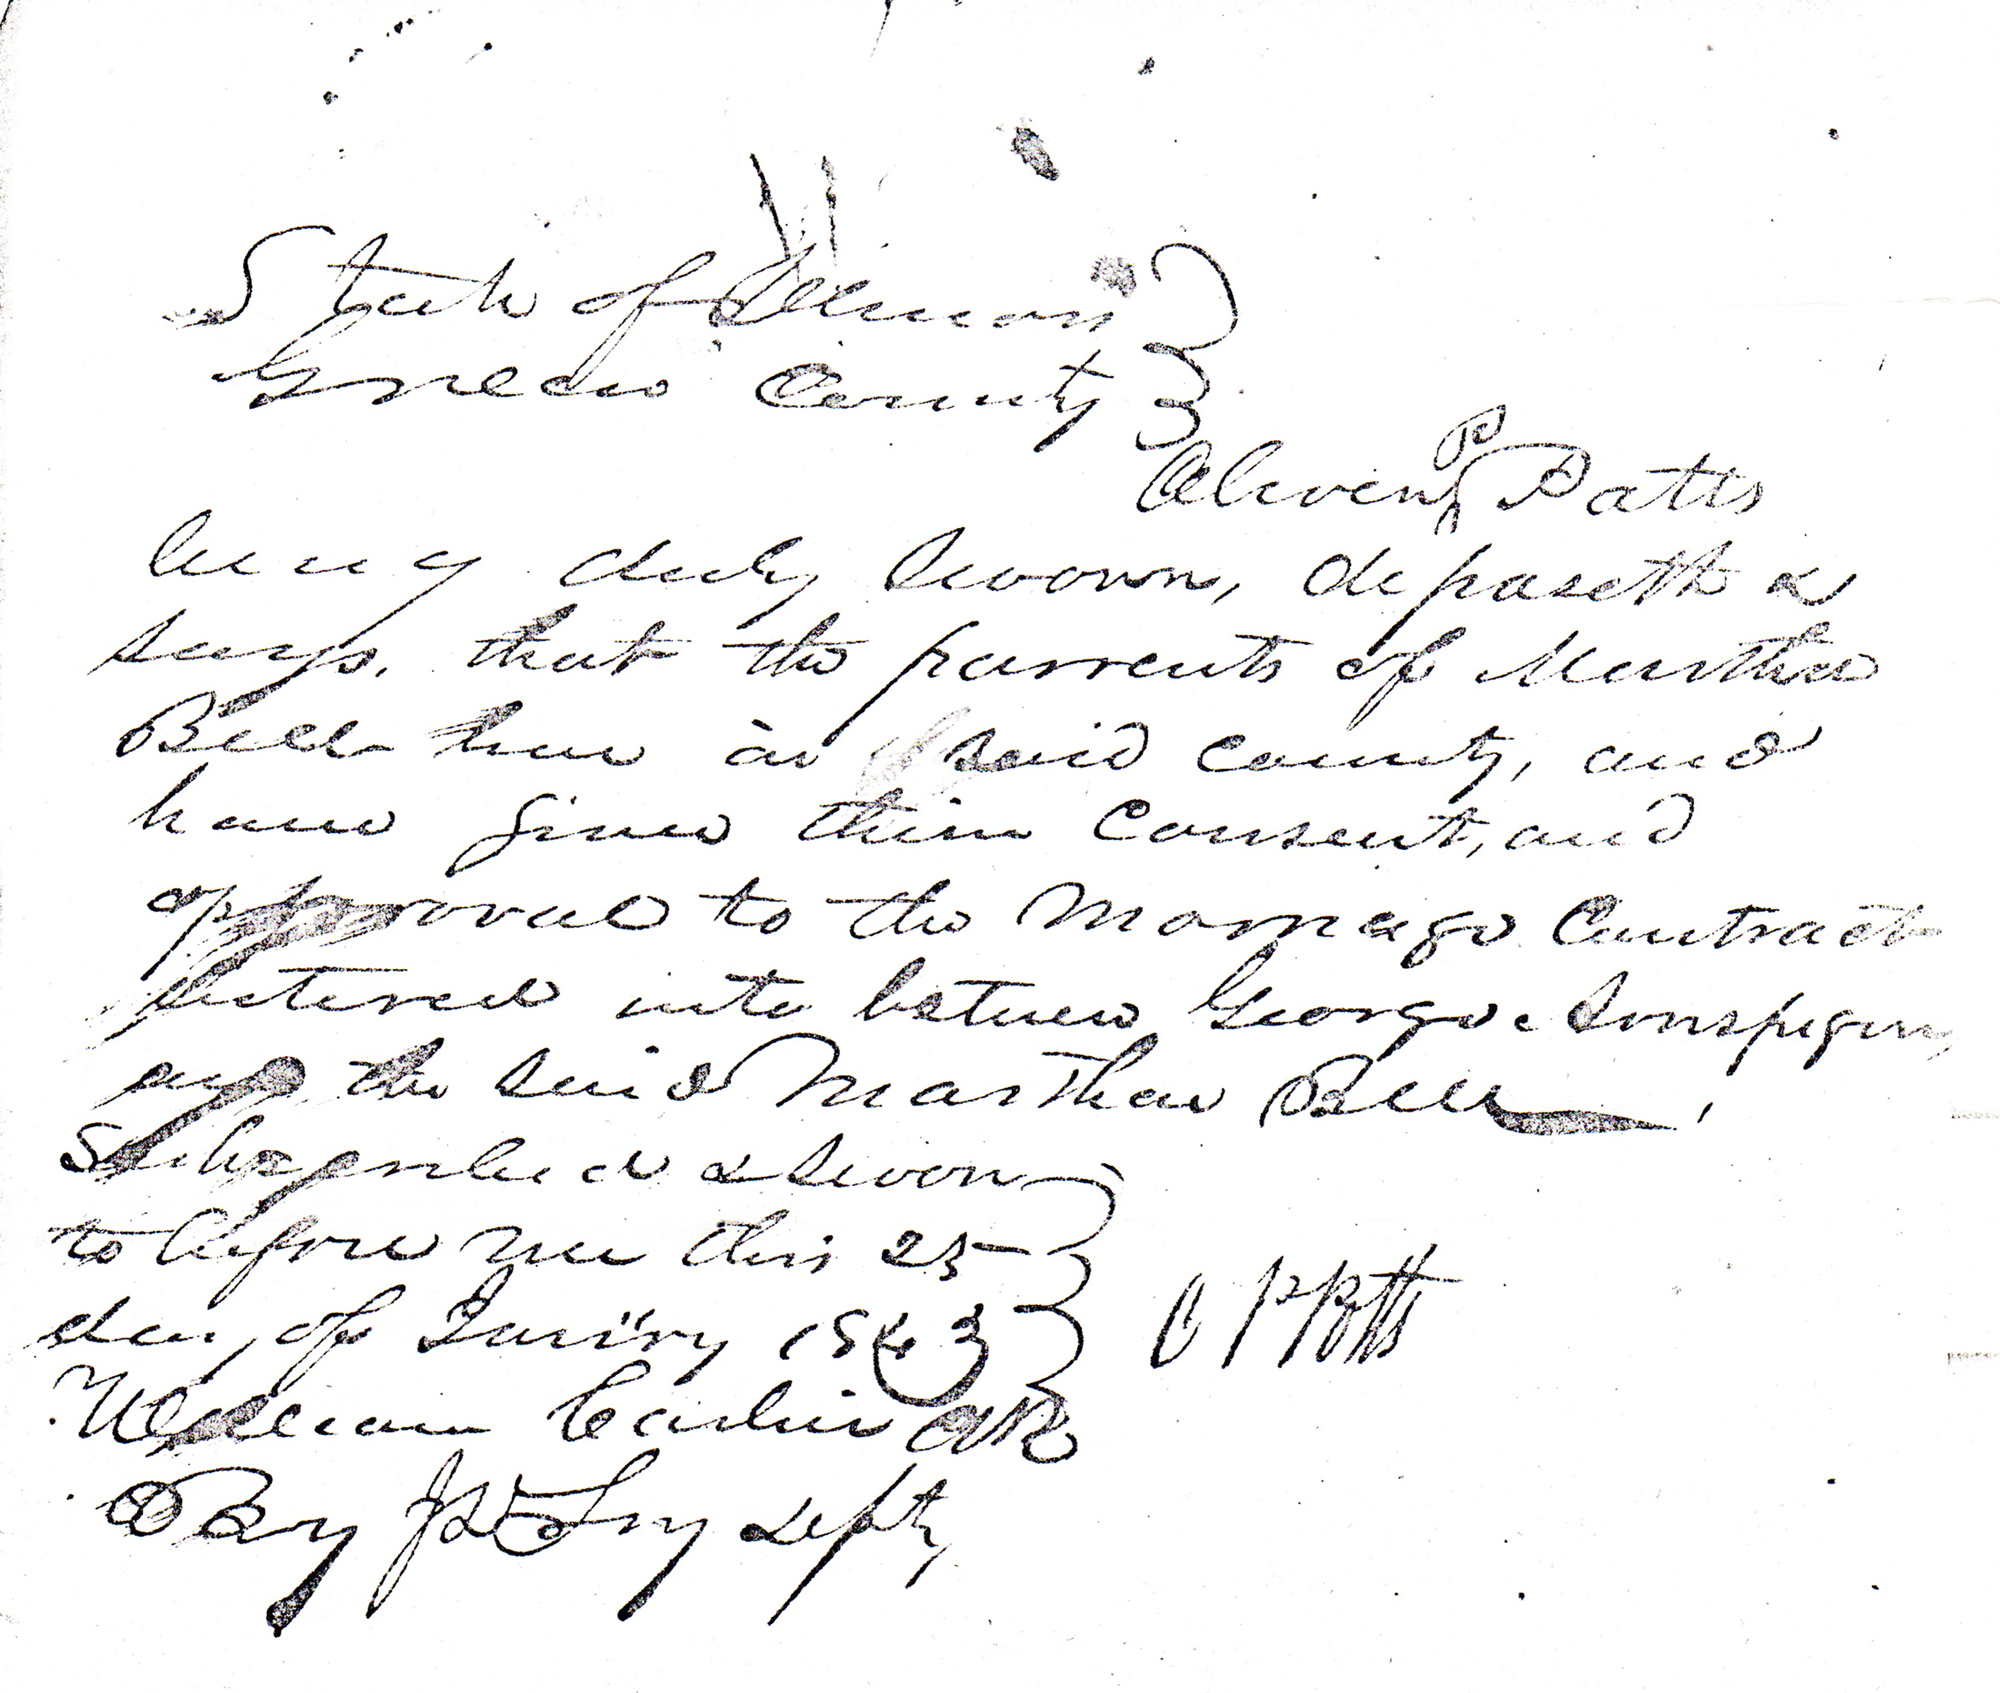 State of Illinois
Greene County
Oliver P Potts
being duly sworn, deposeth &
says, that the parrents of Martha
Bell live in said county, and
have given their consent, and
approval to the Marriage Contract
entered into between George
and the said Martha Bell,
Subscribed & sworn
to before me this 25
day of Janry 1843
O P Potts
William Carlin Clk
By Depty